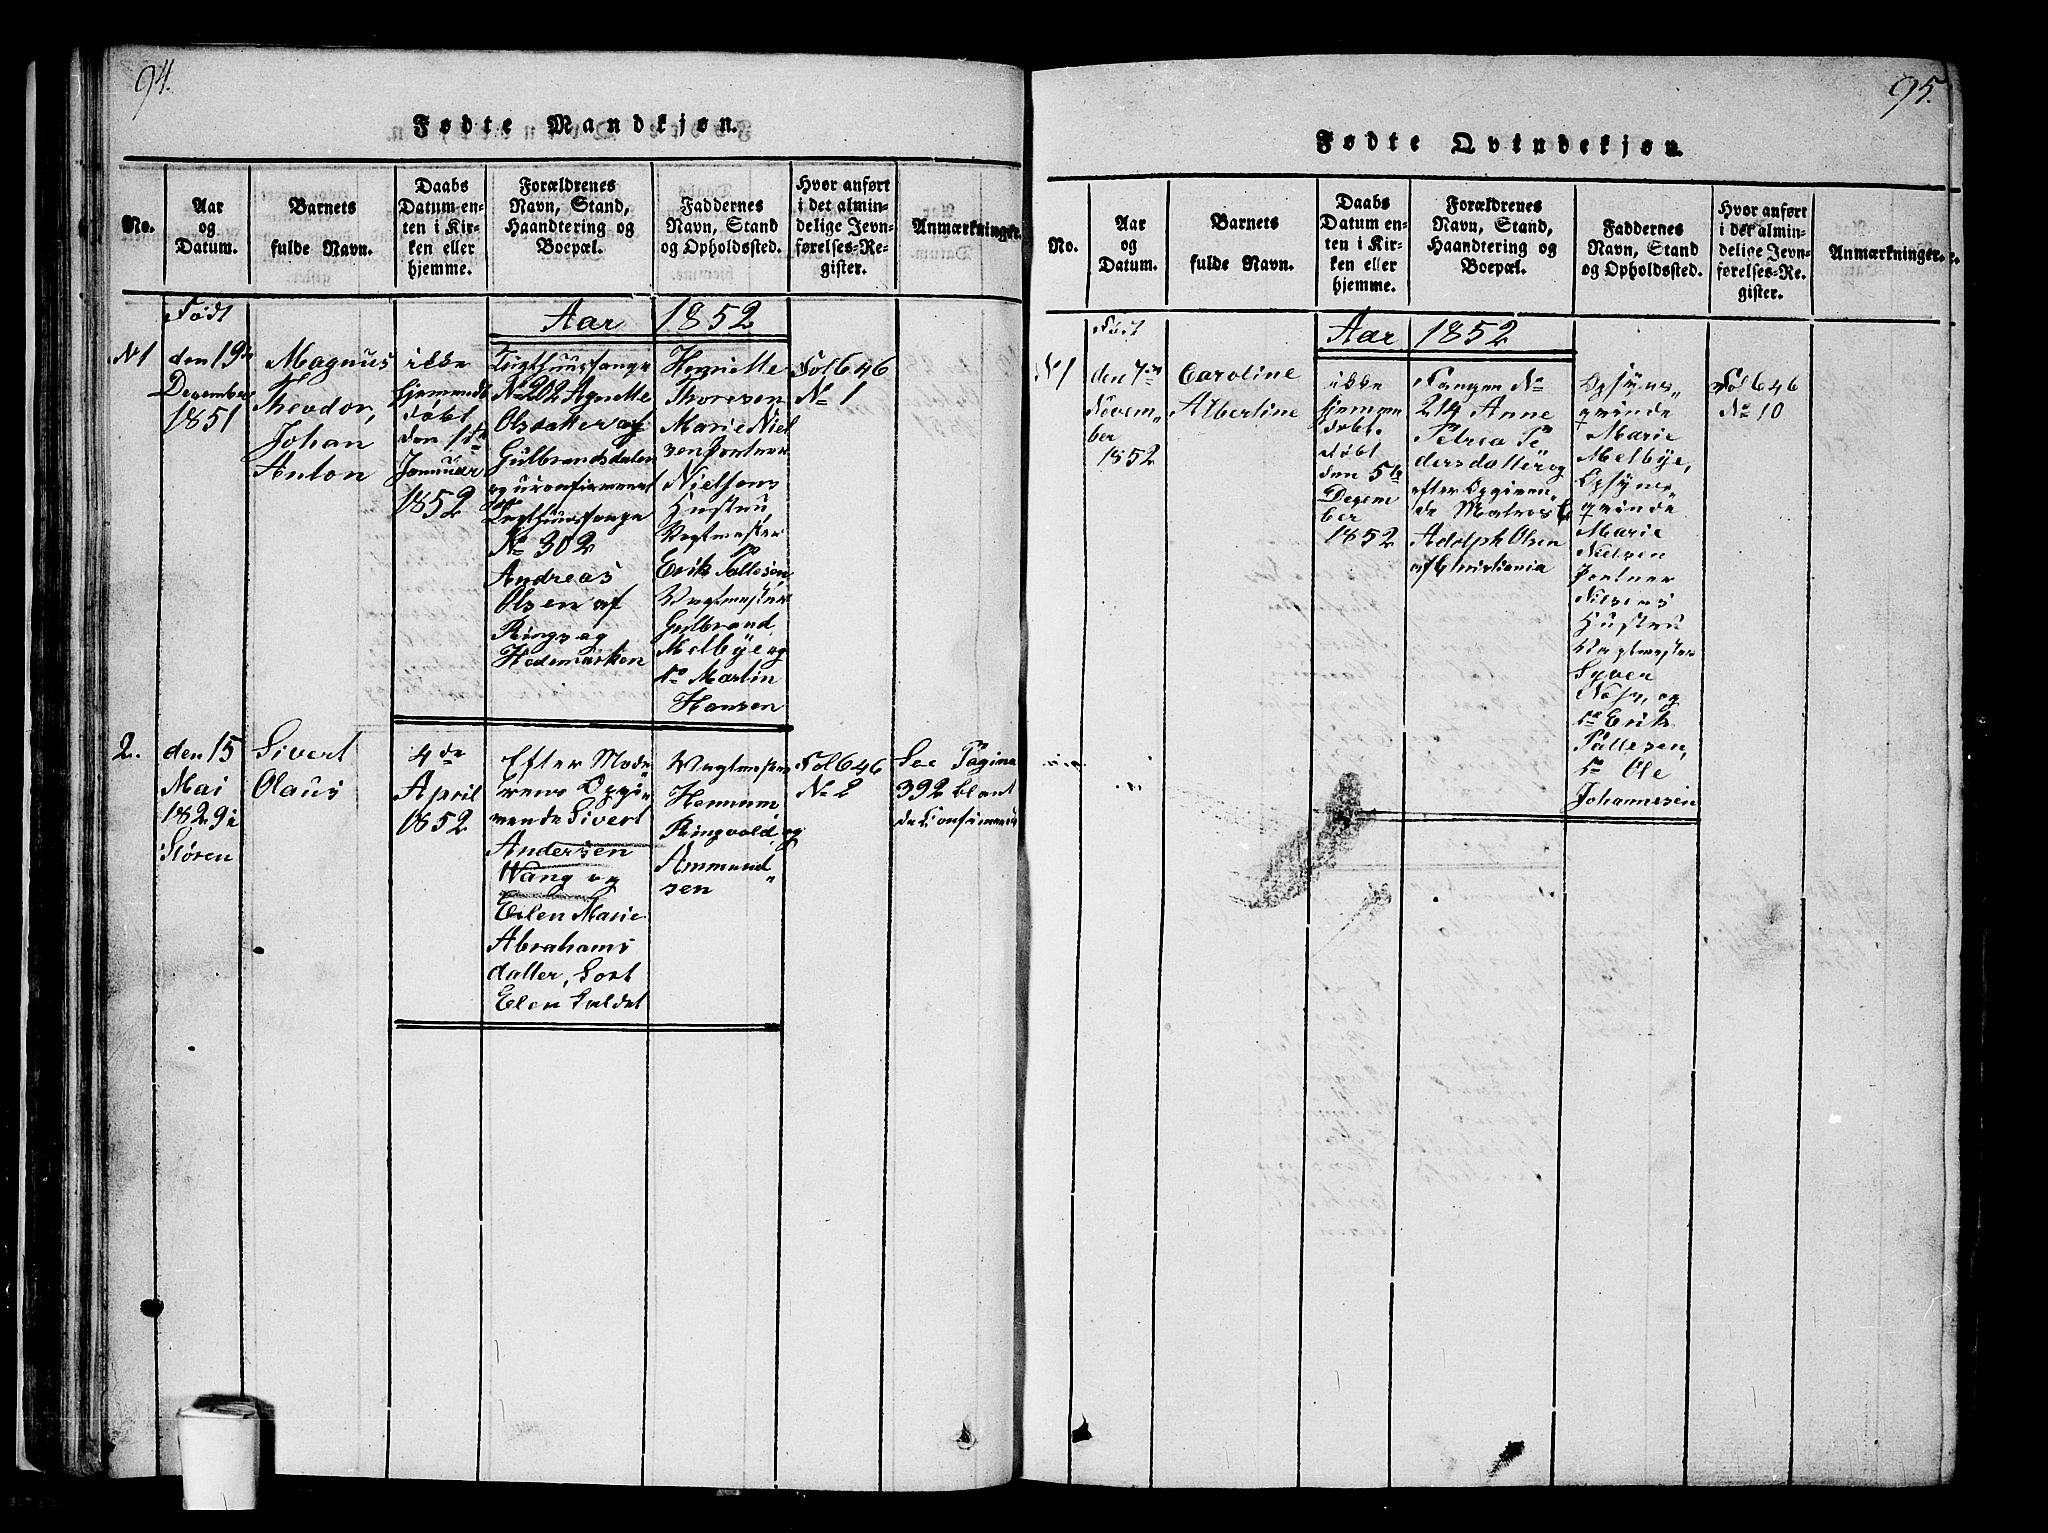 94.
Fødte Mandkjøn.
No.
Aar
og
Datum.
Barnets
fulde Navn.
Daabs
Datum en-
ten i Kir-
ken eller
hjemme.
Forældrenes
Navn, Stand,
Haandtering og
Boepæl.
Faddernes
Navn, Stand
og Opholdssted.
Hvor anført
i det almin-
delige Jevn-
førelses-Re-
gister.
Anmærkninger.
Aar 1852
N 1
Født
den 19de
Dezember
1851
Magnus
Theodor,
Johan
Anton
ikke
hjemmedøbt
døbt
den 1ste
Januar
1852
Tugthuusfange
No 202 Agnette
Olsdatter af
Gulbrandsdalen
og uconfirmeret
Tugthuusfange
No 302
Andreas
Olsen af
Ringsag
Hedemarken
Henriette
Thoresen
Marie Niel
sen Portner
Nielsens
Hustru,
Vagtmester
Erik Pallesen
Vagtmester
Gulbrand
Melbye og
do Martin
Hansen
Fol 646
No 1
2.
den 15
Mai
1829 i
Støren
Sivert
Olaus
4de
April
1852
Efter Mode
rens Opgi
vende Sivert
Andersen
Wang og
Elen Marie
Abrahams
datter, Sort
Elen kaldet
Vagtmester
Hemmim
Ringvold og
Ammund
sen
Fol 646
No 2
See Pagina
392 blant
de Confirmerede
95.
Fødte Qvindekjøn.
No.
Aar
og
Datum.
Barnets
fulde Navn.
Daabs
Datum en-
ten i Kir-
ken eller
hjemme.
Forældrenes
Navn, Stand,
Haandtering og
Boepæl.
Faddernes
Navn, Stand
og Opholdssted.
Hvor anført
i det almin-
delige Jevn-
førelses-Re-
gister.
Anmærkninger.
Aar 1852
N 1
Født
den 7de
Novem
ber
1852
Caroline
Albertine
ikke
hjemme
døbt.
døbt
den 5te
Dezem
ber
1852
Fangen No
214 Anne
Petrea Pe
dersdatter og
efter Opgiven
de Matros
Adolph Olsen
af Christiania
Opsyns
qvinde
Marie
Melbye,
Opsyns
qvinde
Marie
Nielsen
Portner
Nielsens
Hustru
Vagtmester
Syver
Næss, og
do Erik
Pallesen,
do Ole
Johannesen
Fol 646
No 10